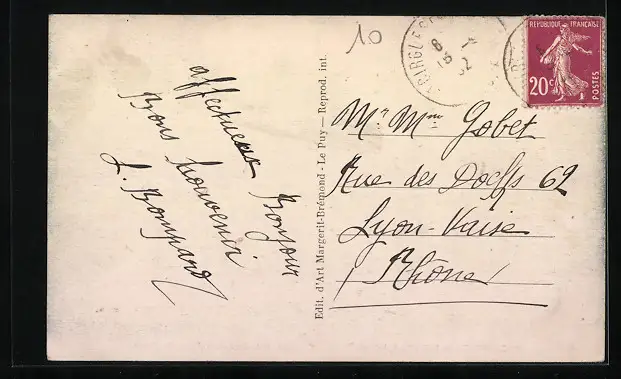 10
RÉPUBLIQUE FRANÇAISE
20c
POSTES
affectueux Bonjour
Bons souvenir
L. Bompard
Edit. d'Art Margerit-Brémond - Le Puy — Reprod. int.
Mr Mme Gobet
Rue des Docks 62
Lyon-Vaise
Rhône